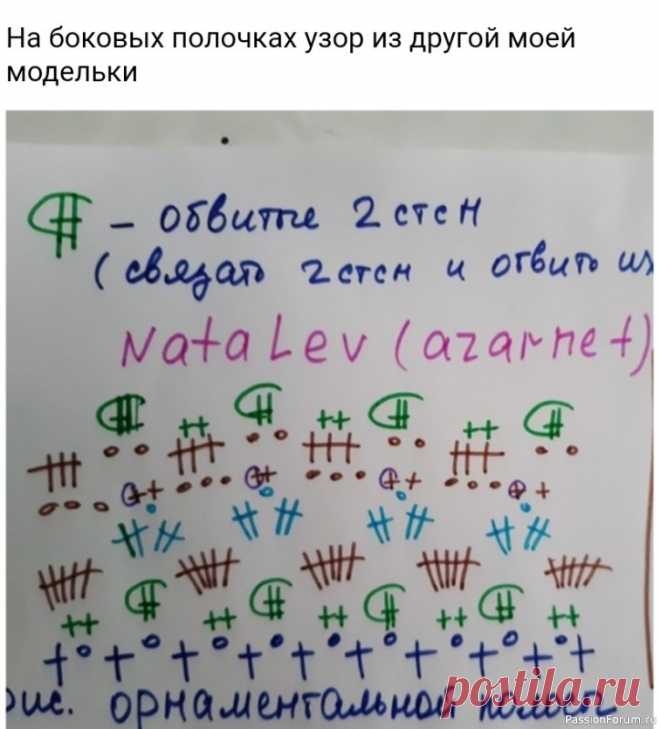 На боковых полочках узор из другой моей
модельки
– обвитые 2 стсн
(связать 2 стсн и обвить их
NataLev (azarnet)
рис. орнаментальной полосы
postila.ru
PassionForum.ru